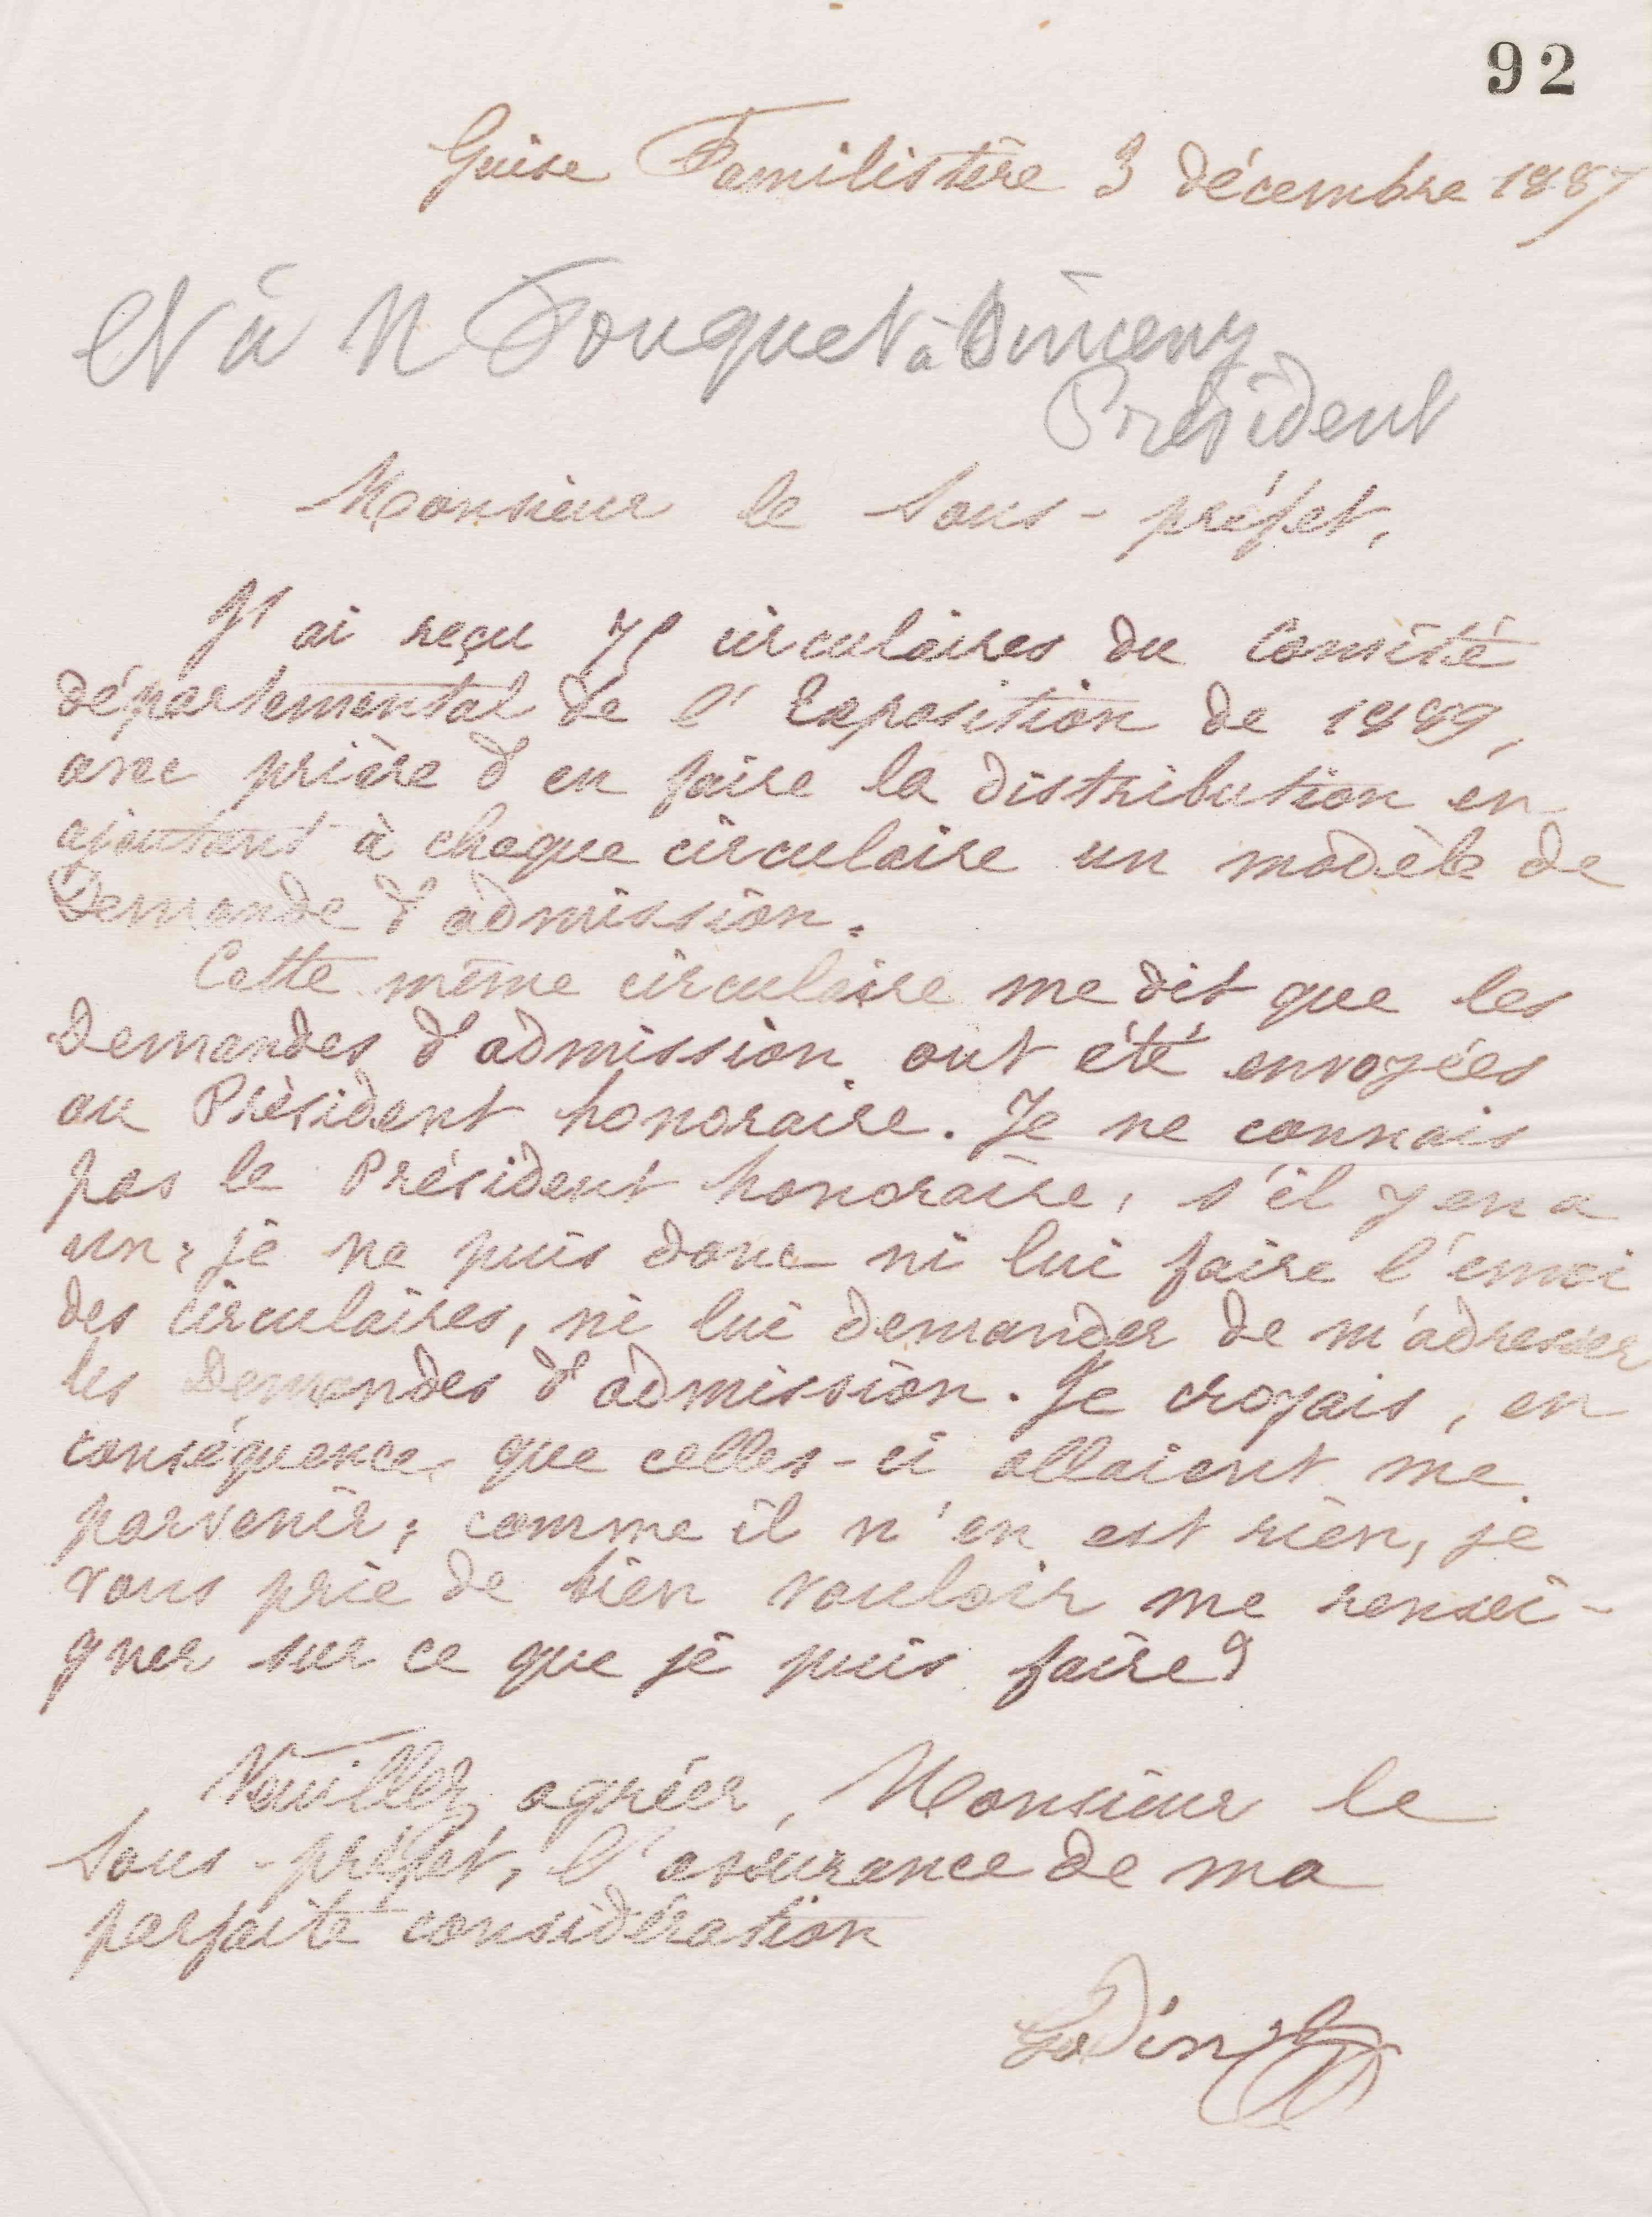 92
Guise Familistère 3 décembre 1887
et à M Fouquet à Sinceny
Président
Monsieur le Sous-préfet,
J'ai reçu 75 circulaires du Comité
départemental de l'Exposition de 1889,
avec prière d'en faire la distribution en
ajoutant à chaque circulaire un modèle de
Demande d'admission.
Cette même circulaire me dit que les
Demandes d'admission ont été envoyées
au Président honoraire. Je ne connais
pas le Président honoraire, s'il y en a
un; je ne puis donc ni lui faire l'envoi
des circulaires, ni lui demander de m'adresser
les Demandes d'admission. Je croyais, en
conséquence, que celles-ci allaient me
parvenir; comme il n'en est rien, je
vous prie de bien vouloir me rensei-
gner sur ce que je puis faire?
Veuillez agréer, Monsieur le
Sous-préfet, l'assurance de ma
parfaite considération
Godin